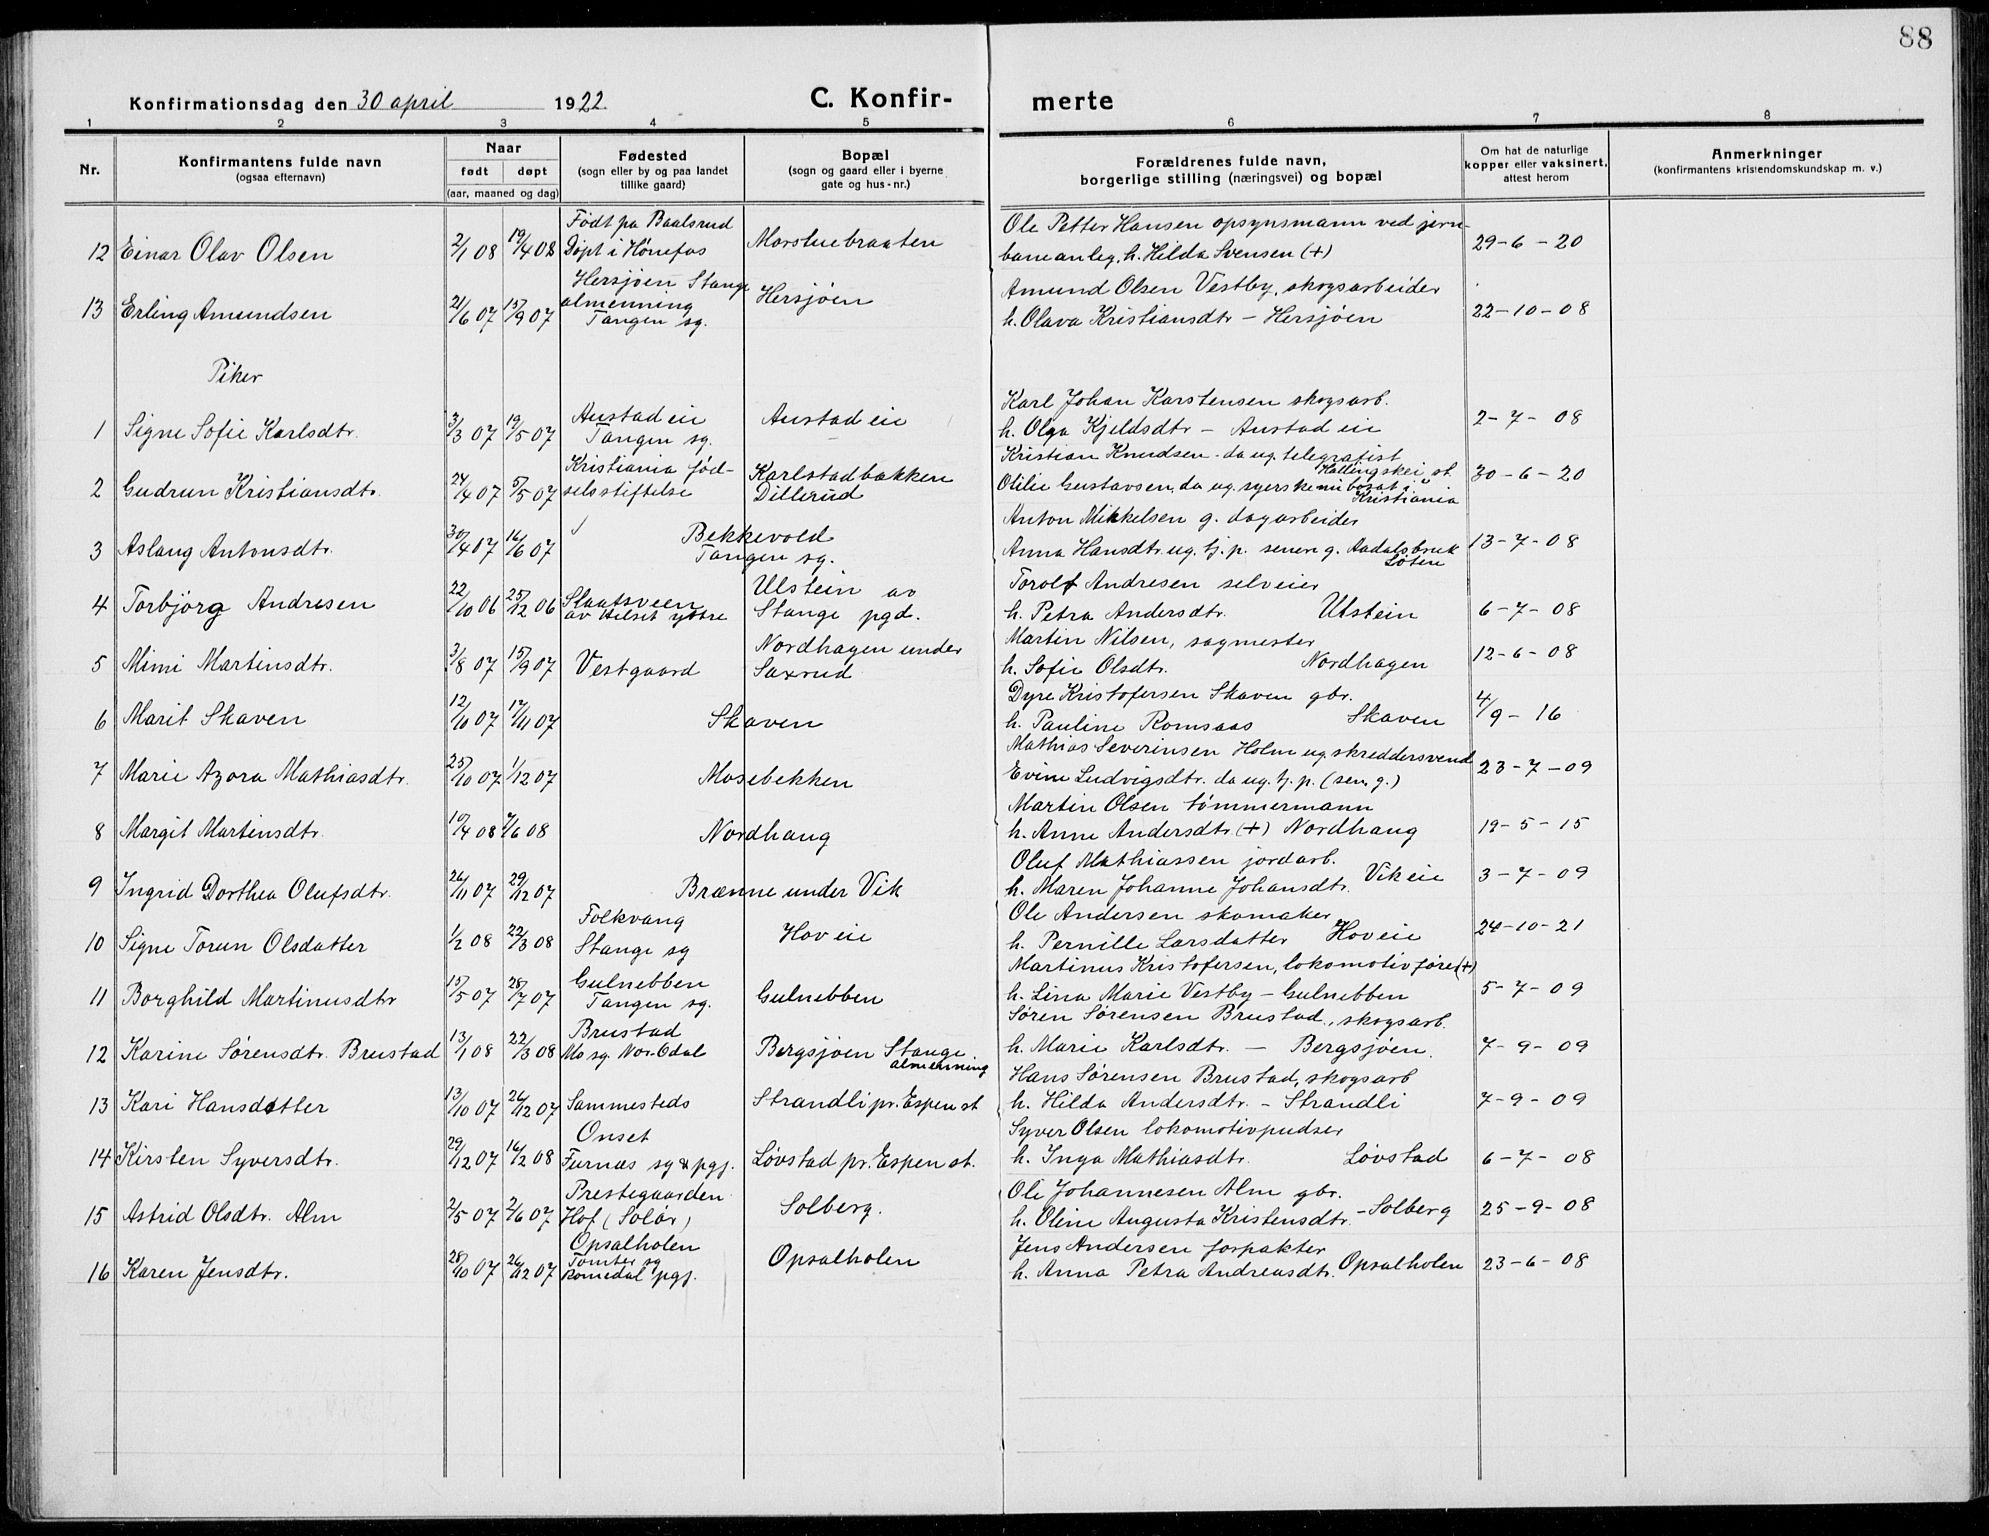 88
Konfirmationsdag den 30 april 1922. C. Konfir- merte
1 2 3 4 5 6 7 8
Nr. Konfirmantens fulde navn (ogsaa efternavn) Naar født døpt (aar, maaned og dag) Fødested (sogn eller by og paa landet tillike gaard) Bopæl (sogn og gaard eller i byerne gate og hus-nr.) Forældrenes fulde navn, borgerlige stilling (næringsvei) og bopæl Om hat de naturlige kopper eller vaksinert, attest herom Anmerkninger (konfirmantens kristendomskundskap m. v.)
Født pa Baalsrud Ole Petter Hansen opsynsmann ved jern-
12 Einar Olav Olsen 2/1 08 19/4 08 Døpt i Hønefos Morstuebraaten baneanleg, h. Hilda Svensen (+) 29-6-20
Hersjøen Stange Amund Olsen Vestby, skogsarbeider
almenning Hersjøen
13 Erling Amundsen 21/6 07 15/9 07 Tangen sg. h. Olava Kristiansdtr - Hersjøen 22-10-08
Piker
Karl Johan Karstensen skogsarb.
Austad eie Austad eie
1 Signe Sofie Karlsdtr. 3/3 07 19/5 07 Tangen sg. h. Olga Kjeldsdtr - Austad eie 2-7-08
Kristiania fød- Karlstadbakken Kristian Knudsen - da ug. telegrafist Hallingskei st.
2 Gudrun Kristiansdtr. 24/4 07 5/5 07 selsstiftelse Dillerud Otilie Gustavsen, da ug. syerske nu bosat i Kristiania 30-6-20
Bekkevold Anton Mikkelsen g. dagarbeider
3 Aslaug Antonsdtr. 30/4 07 16/6 07 Tangen sg. Anna Hansdtr. ug. tj. p. senere g. Aadalsbruk Løten 13-7-08
Slaatsveen Ulstein av Torolf Andresen selveier
4 Torbjørg Andresen 22/10 06 25/12 06 av Hilset yttre Stange pgd. h. Petra Andersdtr. Utstein 6-7-08
Nordhagen under Martin Nilsen, sagmester
5 Mimi Martinsdtr. 3/8 07 15/9 07 Vestgaard Saxrud h. Sofie Olsdtr. Nordhagen 12-6-08
Dyre Kristofersen Skaven gbr.
6 Marit Skaven 12/10 07 17/11 07 Skaven h. Pauline Romsaas Skaven 4/9-16
Mathias Severinsen Holm ug. skreddersvend
7 Marie Azora Mathiasdtr. 25/10 07 1/12 07 Mosebekken Evine Ludvigsdtr. da ug. tj. p. (sen. g.) 23-7-09
Martin Olsen tømmermann
8 Margit Martinsdtr. 10/4 08 7/6 08 Nordhaug h. Anne Andersdtr. (+) Nordhaug 19-5-15
Oluf Mathiassen jordarb.
9 Ingrid Dorthea Olufsdtr. 26/11 07 29/12 07 Brænne under Vik h. Maren Johanne Johansdtr. Vik eie 3-7-09
Folkvang Ole Andersen skomaker
10 Signe Torun Olsdatter 1/2 08 22/3 08 Stange sg Hov eie h. Pernille Larsdatter Hov eie 24-10-21
Gulnebben Martinus Kristofersen, lokomotivfører (+)
11 Borghild Martinusdtr 15/5 07 28/7 07 Tangen sg. Gulnebben h. Lina Marie Vestby - Gulnebben 5-7-09
Brustad Søren Sørensen Brustad, skogsarb.
12 Karine Sørensdtr. Brustad 13/1 08 22/3 08 Mo sg. Nor-Odal Bergsjøen Stange almenning h. Marie Karlsdtr. - Bergsjøen. 7-9-09
Hans Sørensen Brustad, skogsarb
13 Kari Hansdatter 13/10 07 26/12 07 Sammesteds Strandli pr. Espen st h. Hilda Andersdtr. - Strandli 7-9-09
Onset Syver Olsen lokomotivpudser
14 Kirsten Syversdtr. 29/12 07 16/2 08 Furnæs sg & pgj. Løvstad pr. Espen st. h. Inga Mathiasdtr. Løvstad 6-7-08
Prestegaarden Ole Johannesen Alm gbr.
15 Astrid Olsdtr. Alm 2/5 07 2/6 07 Hof (Solør) Solberg. h. Oline Augusta Kristensdtr. - Solberg 25-9-08
Opsalholen Jens Andersen forpakter
Tomter sg
16 Karen Jensdtr. 28/10 07 26/12 07 Romedal pgj. Opsalholen h. Anna Petra Andreasdtr. Opsalholen 23-6-08